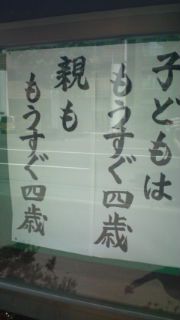 子どもは
もうすぐ四歳
親も
もうすぐ四歳